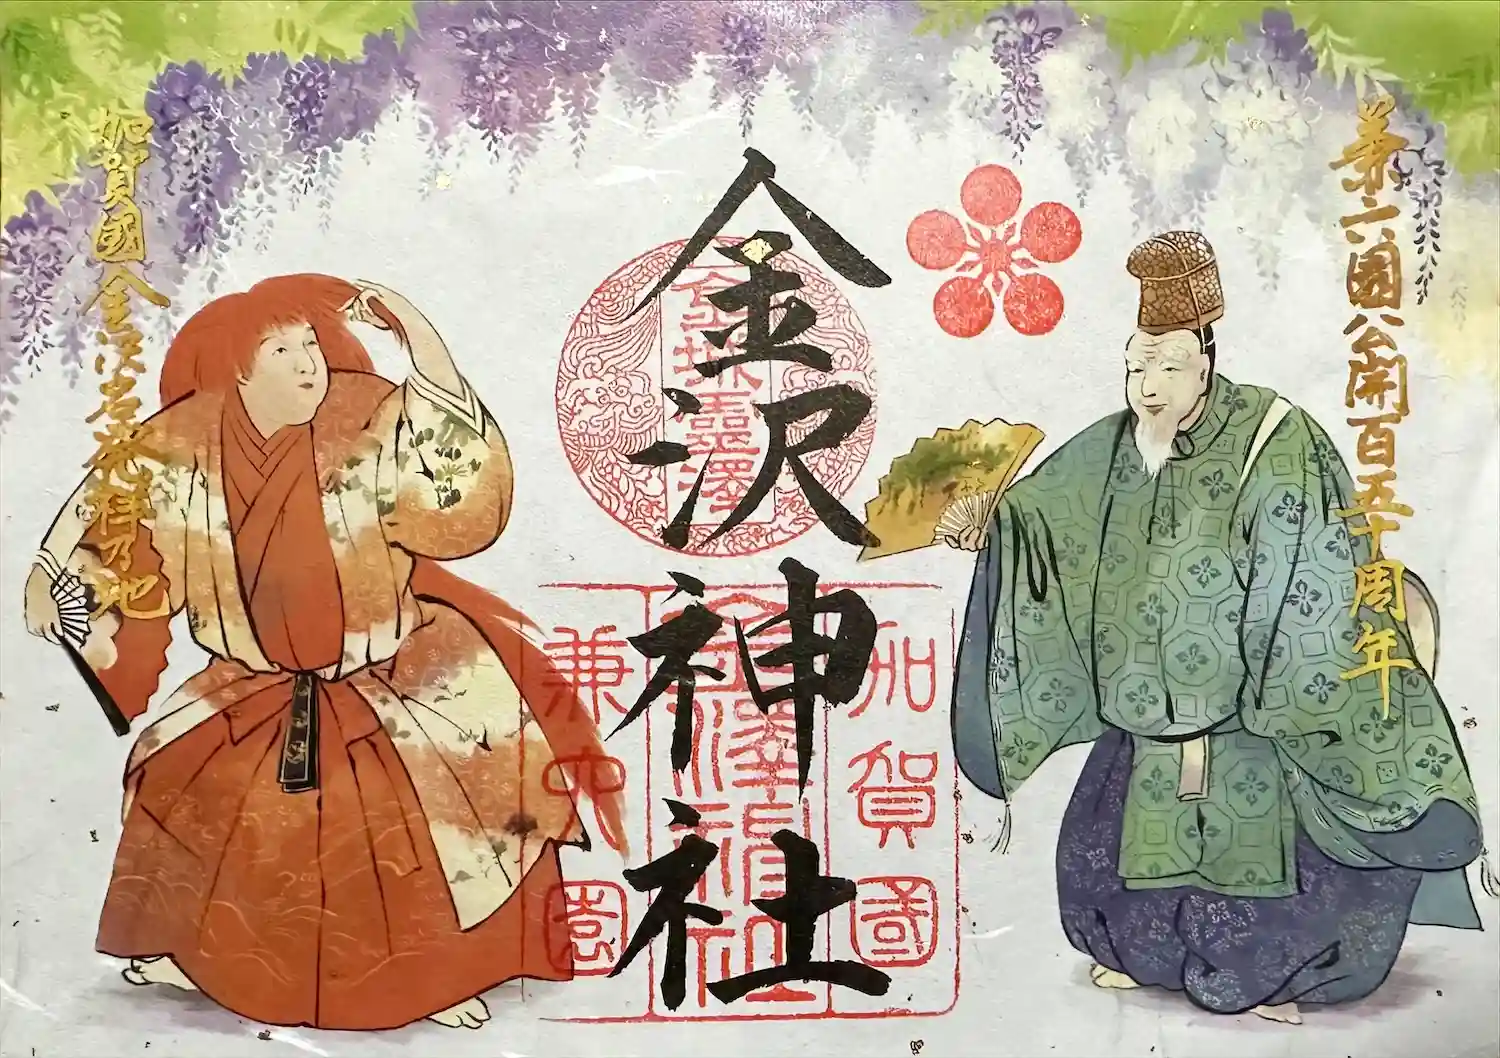 兼六園公開百五十周年
金沢神社
金城靈澤
加賀國
金澤神社
兼六園
加賀國金沢名発祥乃地